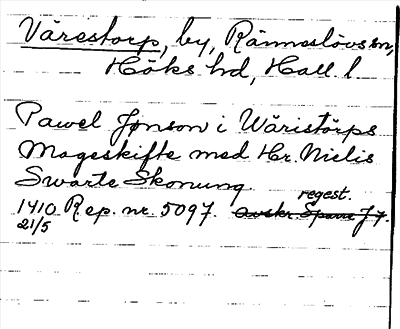 Vårestorp, by, Ränneslövs sn,
Höks hd, Hall. l.
Pawel Jønson i Wåristörps
Mageskifte med Hr. Nielis
Swarte Skonung.
regest.
1410 Rep. nr. 5097. Avskr. Sparre J 7.
21/5